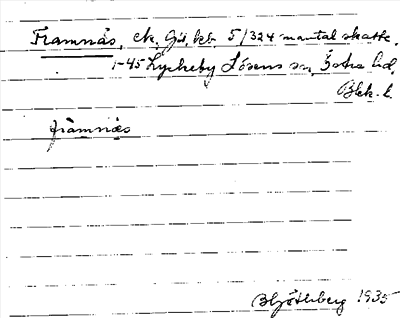 Framnäs, ek. Gå, kbl. 5/324 mantal skatte.
1-45 Lyckeby Lösens sn, Östra hd,
Blek. l.
främnäs
B Hjöthberg 1935